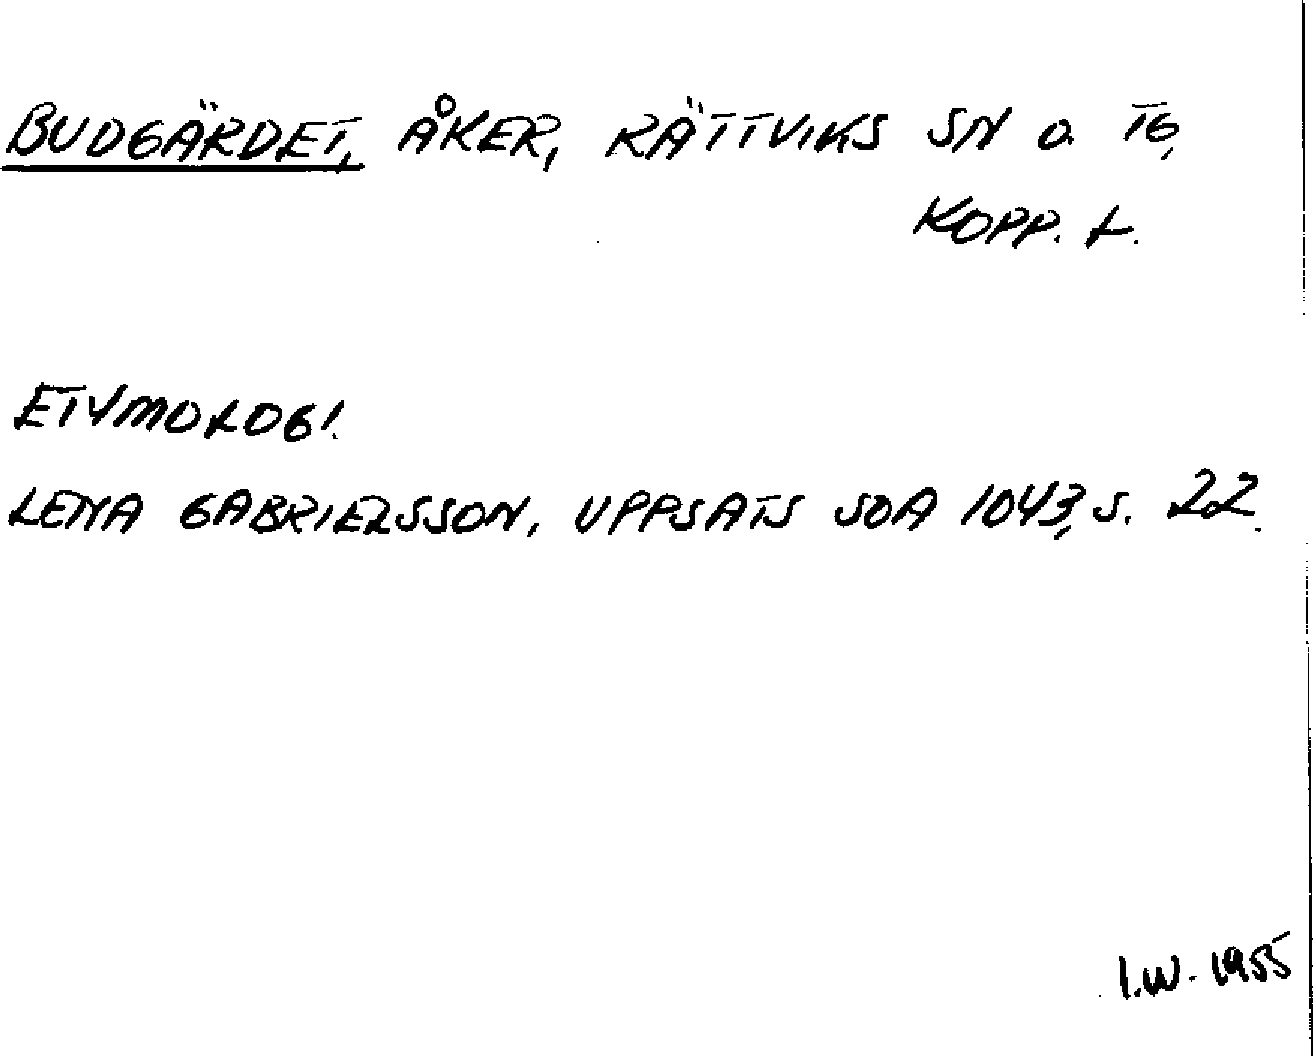 BUDGÄRDET, ÅKER, RÄTTVIKS SN O. TG,
KOPP. L.
ETYMOLOGI.
LENA GABRIELSSON, UPPSATS SOA 1043, S. 22.
I.W. 1955